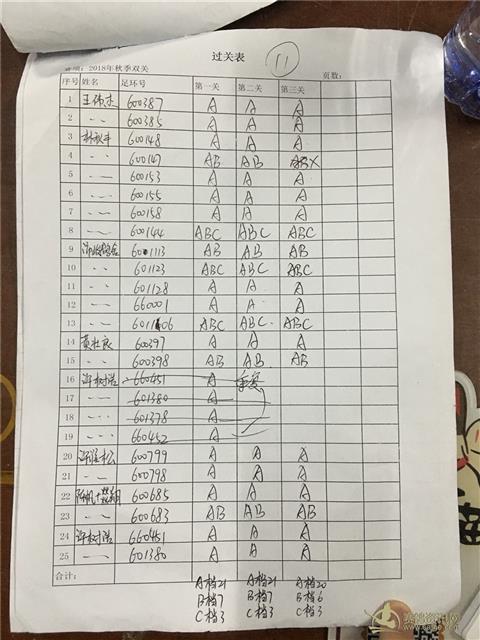 过关表
11
2018年秋季双关
页数:
序号 姓名 足环号 第一关 第二关 第三关
1 王伟杰 600387 A A A
2 〃 600385 A A A
3 600148 A A A
4 〃 600147 AB AB ABX
5 〃 600153 A A A
6 〃 600155 A A A
7 〃 600158 A A A
8 〃 600144 ABC ABC ABC
9 AB AB AB
10 〃 601123 ABC ABC ABC
11 〃 601128 A A A
12 〃 660001 A A A
13 〃 ABC ABC ABC
14 黄壮良 600397 A A A
15 〃 600398 AB AB AB
16 许树浩 660451 A 重复
17 〃 601380 A
18 〃 601378 A
19 〃 660452 A
20 600799 A A A
21 〃 600798 A A A
22 600685 A A A
23 〃 600683 AB AB AB
24 许树浩 660451 A A A
25 〃 601380 A A A
合计:
A档21 A档21 A档20
B档7 B档7 B档6
C档3 C档3 C档3